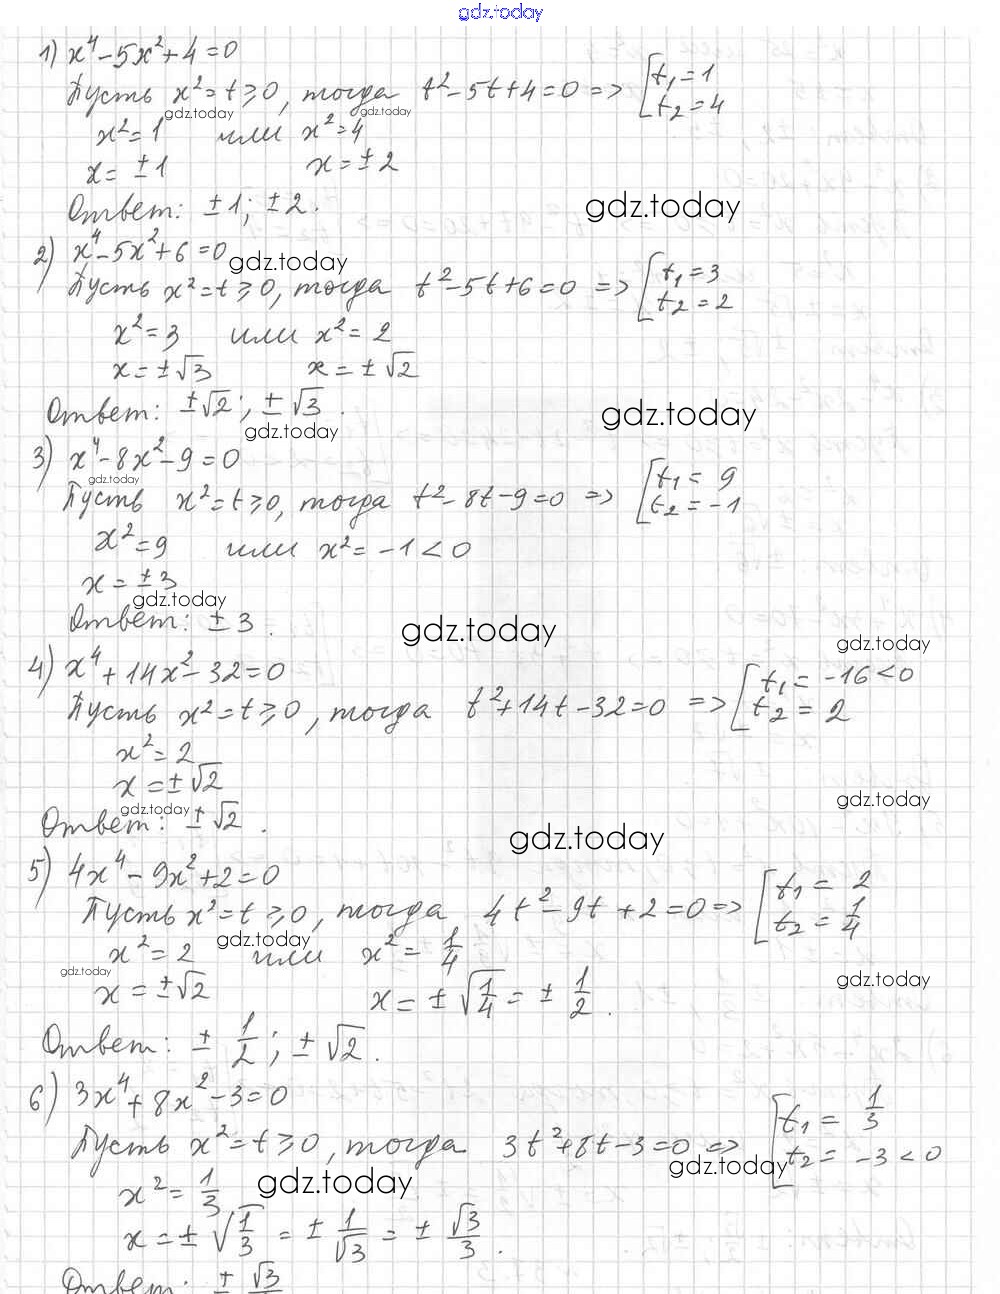 gdz.today
1) x⁴ - 5x² + 4 = 0
Пусть x² = t ⩾ 0, тогда t² - 5t + 4 = 0 => [t₁ = 1
gdz.today gdz.today t₂ = 4
x² = 1 или x² = 4
x = ± 1 x = ± 2
Ответ: ± 1; ± 2.
gdz.today
2) x⁴ - 5x² + 6 = 0
gdz.today
Пусть x² = t ⩾ 0, тогда t² - 5t + 6 = 0 => [t₁ = 3
t₂ = 2
x² = 3 или x² = 2
x = ± √3 x = ± √2
Ответ: ± √2; ± √3.
gdz.today gdz.today
3) x⁴ - 8x² - 9 = 0
gdz.today
Пусть x² = t ⩾ 0, тогда t² - 8t - 9 = 0 => [t₁ = 9
t₂ = -1
x² = 9 или x² = -1 < 0
x = ± 3
gdz.today
Ответ: ± 3.
gdz.today gdz.today
4) x⁴ + 14x² - 32 = 0
Пусть x² = t ⩾ 0, тогда t² + 14t - 32 = 0 => [t₁ = -16 < 0
t₂ = 2
x² = 2
x = ± √2
gdz.today gdz.today
Ответ: ± √2.
gdz.today
5) 4x⁴ - 9x² + 2 = 0
Пусть x² = t ⩾ 0, тогда 4t² - 9t + 2 = 0 => [t₁ = 2
t₂ = 1/4
gdz.today
x² = 2 или x² = 1/4
gdz.today gdz.today
x = ± √2 x = ± √1/4 = ± 1/2.
Ответ: ± 1/2; ± √2.
6) 3x⁴ + 8x² - 3 = 0
Пусть x² = t ⩾ 0, тогда 3t² + 8t - 3 = 0 => [t₁ = 1/3
t₂ = -3 < 0
gdz.today
x² = 1/3
gdz.today
x = ± √1/3 = ± 1/√3 = ± √3/3.
Ответ: ± √3